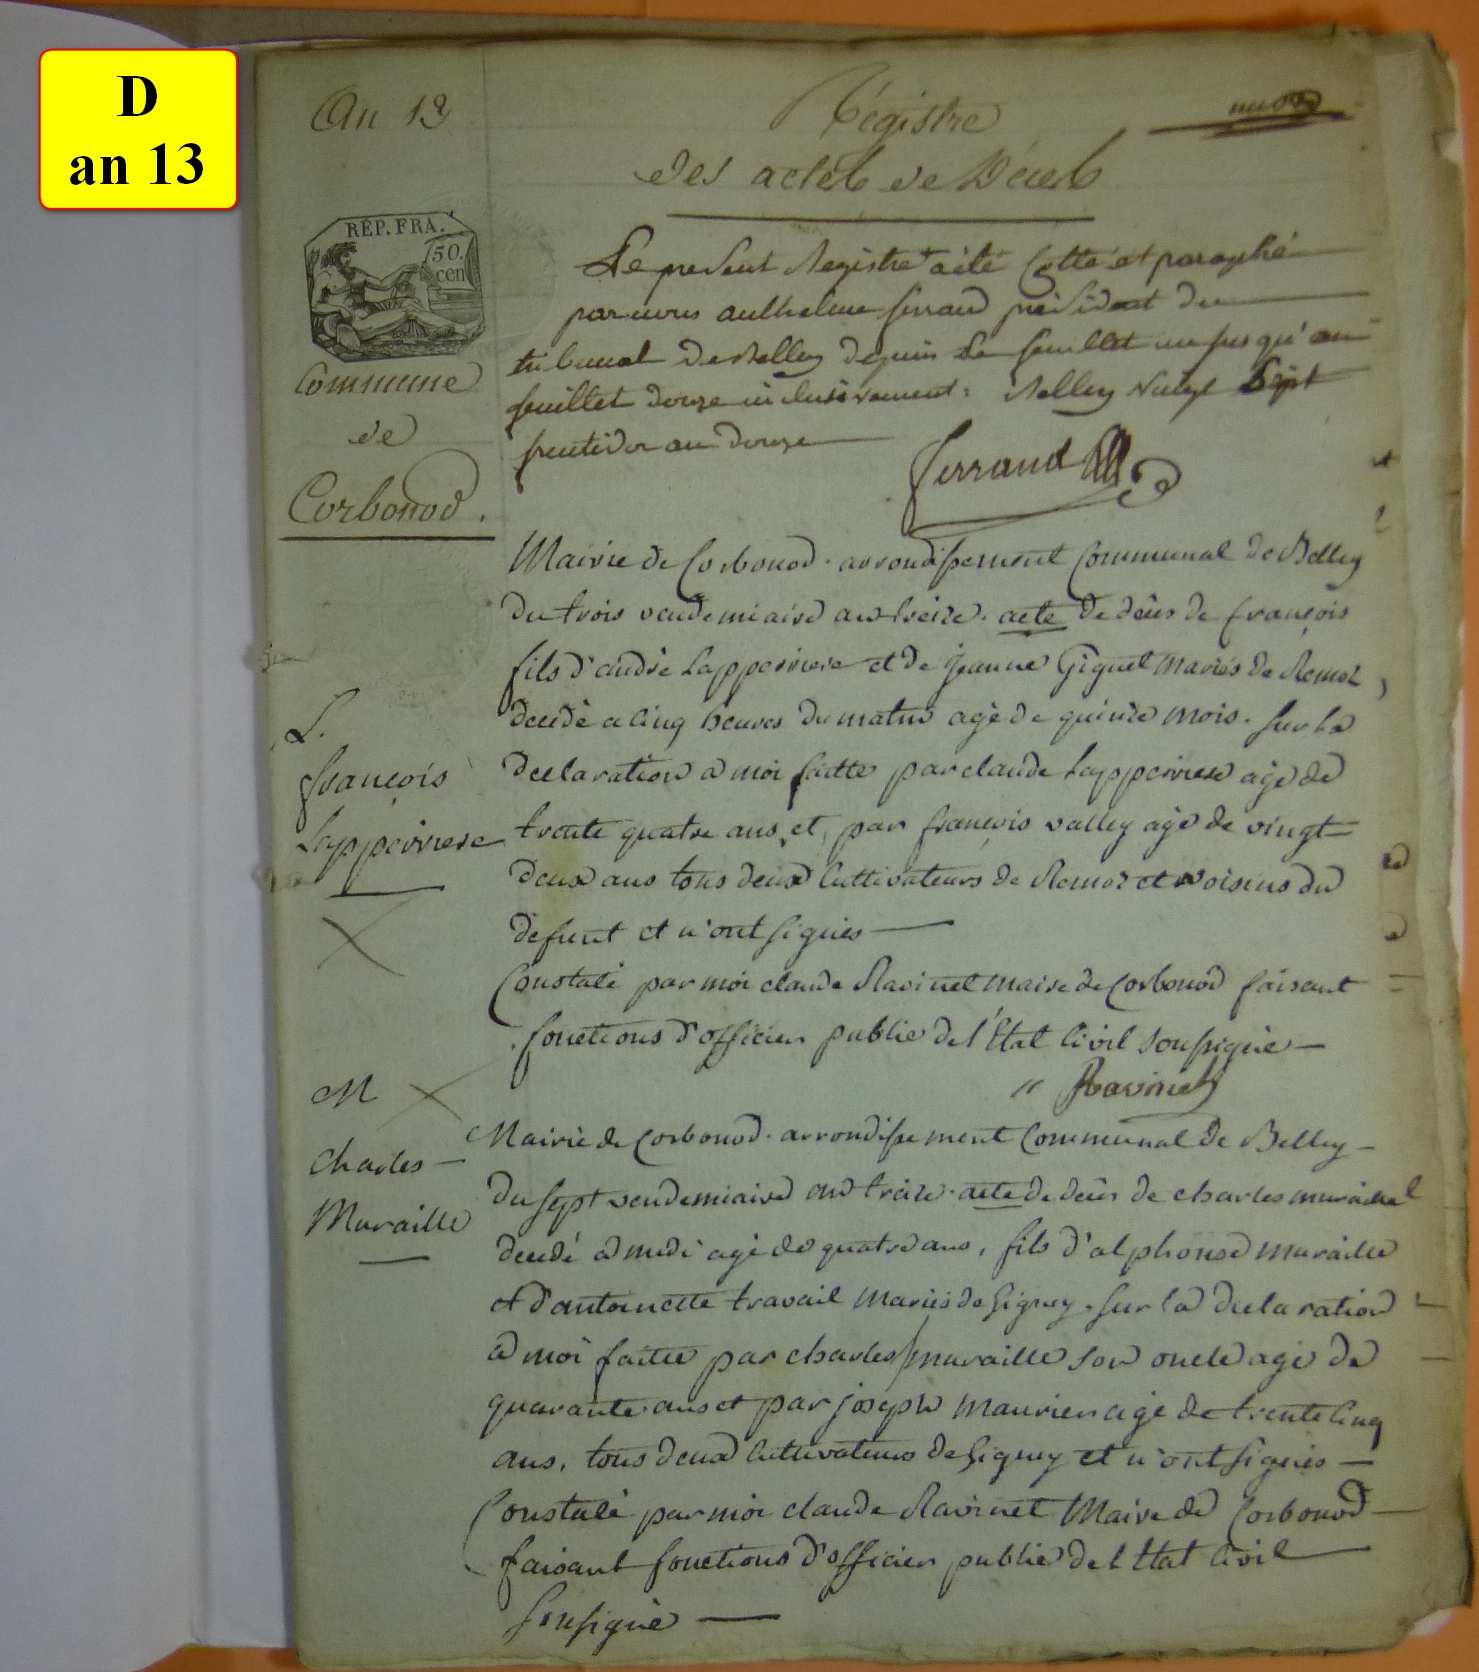 D
an 13
An 13
Régistre
des actes de Décès
REP. FRA.
50.
cen
Commune
de
Corbonod.
Le present Registre a été Cotté et paraphé
par nous anthelme ferrand président du
tribunal de Belley depuis le feuillet un jusqu'au
feuillet douze inclusivement. Belley vingt Sept
fructidor an douze
ferrand
Mairie de Corbonod. arrondissement Communal de Belley
du trois vendemiaire an treize. acte de décès de françois
fils d'andré Lapperriere et de jeanne Giguet mariés de Remoz
decedé a cinq heures du matin agé de quinze mois. sur la
declaration a moi faitte par claude Lapperriere agé de
trente quatre ans, et par françois valley agé de vingt
deux ans tous deux cultivateurs de Remoz et voisins du
defunt et n'ont signés
Constaté par moi claude Ravinet maire de Corbonod faisant
fonctions d'officier public de l'Etat Civil soussigné
Ravinet
L.
françois
Lapperriere
M
Charles
Muraille
Mairie de Corbonod. arrondissement Communal de Belley
du sept vendemiaire an treize. acte de décès de charles muraille
decedé a midi agé de quatre ans, fils d'alphonse muraille
et d'antoinette travail mariés de Gignez. sur la declaration
a moi faitte par charles muraille son oncle agé de
quarante ans et par joseph Maurier agé de trente cinq
ans, tous deux cultivateurs de Gignez et n'ont signés
Constaté par moi claude Ravinet Maire de Corbonod
faisant fonctions d'officier public de l'Etat Civil
soussigné